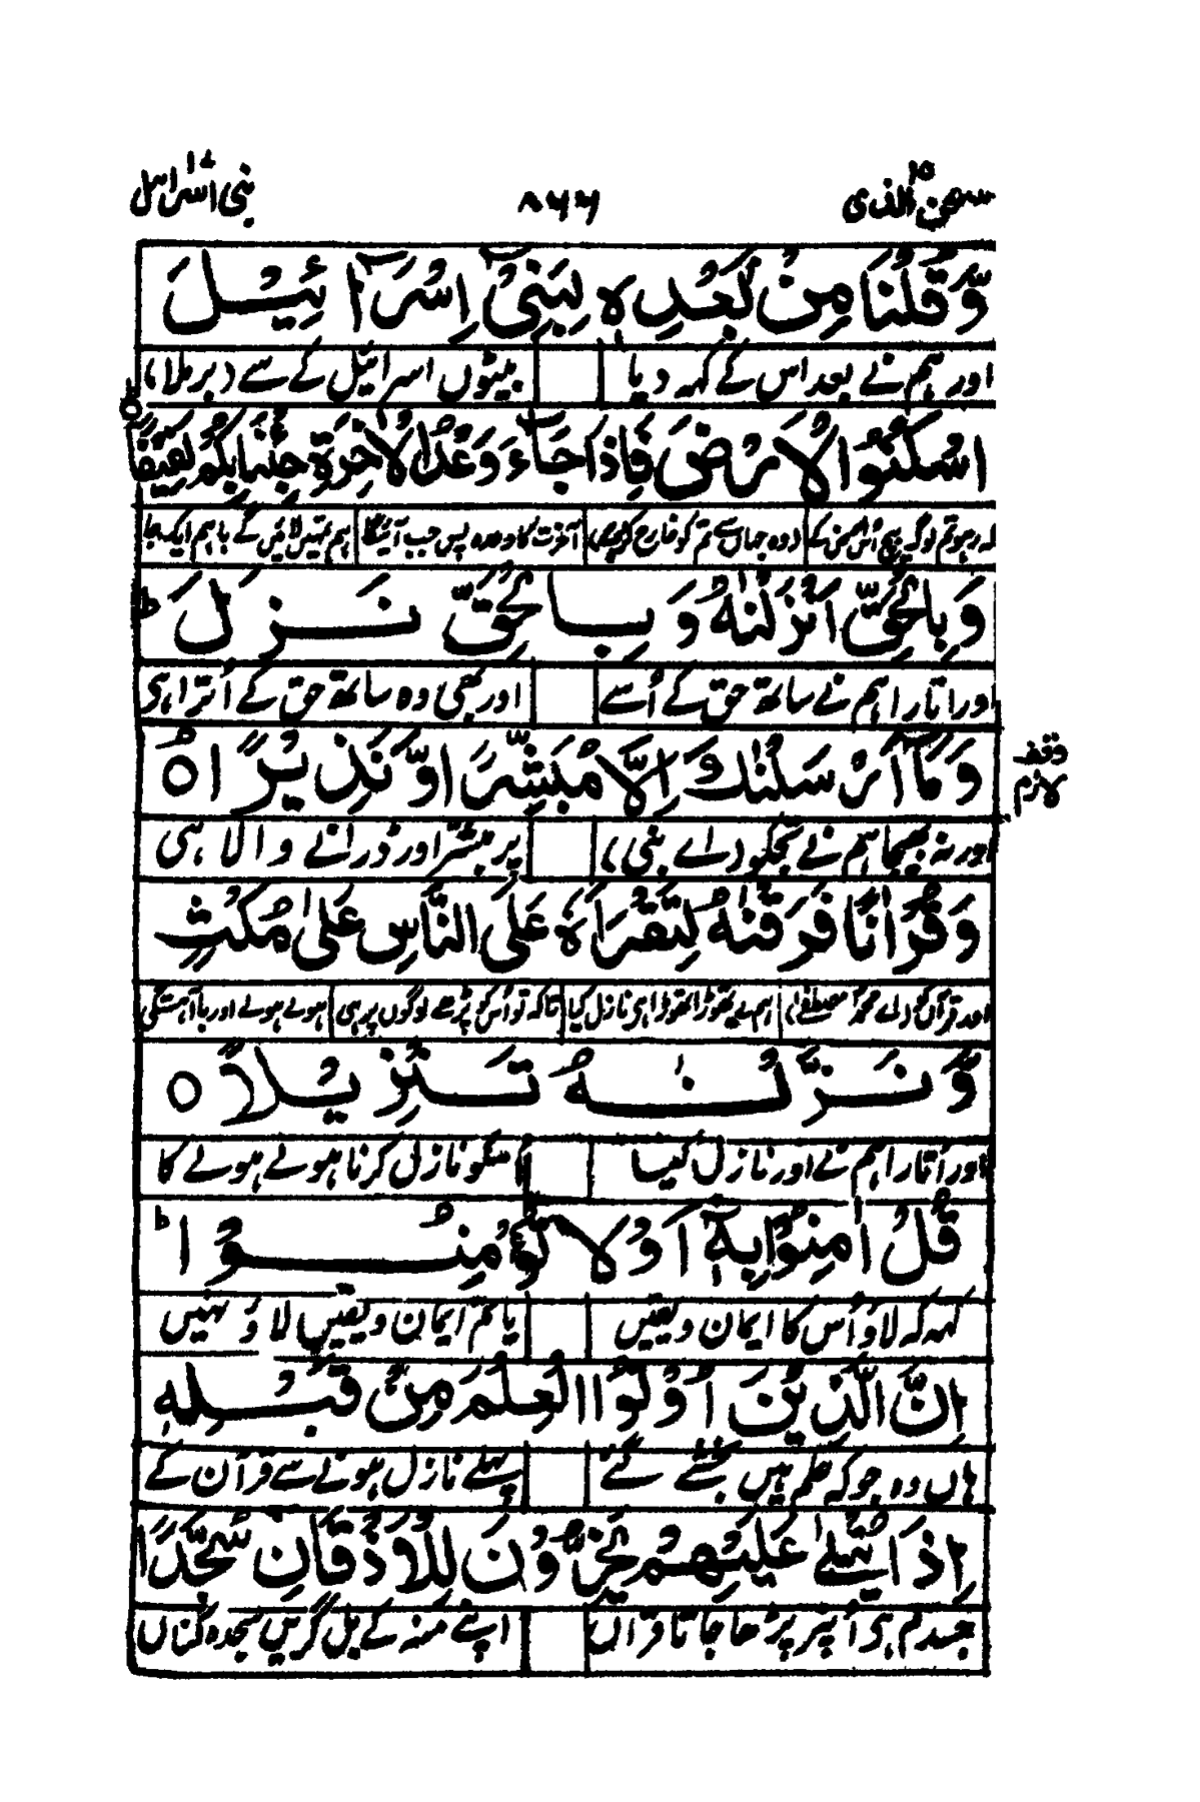 سبحٰن الذی ۱۵ ۸۶۶ بنی اسرآءیل ۱۷
وَّقُلْنَا مِنْۢ بَعْدِهٖ لِبَنِیْۤ اِسْرَآءِیْلَ
اور ہم نے بعد اس کے کہہ دیا بیٹوں اسرائیل کے سے (برملا)
اسْكُنُوا الْاَرْضَ فَاِذَا جَآءَ وَعْدُ الْاٰخِرَةِ جِئْنَا بِكُمْ لَفِیْفًا ○
کہ رہو تم لوگ بیچ اس زمین کے (وہ جہاں سے تم کو خارج کرے) آخرت کا وعدہ پس جب آئیگا ہم تمہیں لائیں گے باہم ایک جا
وَبِالْحَقِّ اَنْزَلْنٰهُ وَبِالْحَقِّ نَزَلَ ؕ
اور اتارا ہم نے ساتھ حق کے اُسے اور بھی وہ ساتھ حق کے اُترا ہی
وَمَاۤ اَرْسَلْنٰكَ اِلَّا مُبَشِّرًا وَّنَذِیْرًا ○
وقف لازم
اور نہ بھیجا ہم نے تجکو (اے نبی) پر مبشر اور ڈرانے والا ہی
وَقُرْاٰنًا فَرَقْنٰهُ لِتَقْرَاَهٗ عَلَى النَّاسِ عَلٰى مُكْثٍ
اور قرآن کو (اے محمد مصطفےٰ) ہم نے تھوڑا تھوڑا ہی نازل کیا تاکہ تو اُس کو پڑھے لوگوں پر ہی ہولے ہولے اور باآہستگی
وَّنَزَّلْنٰهُ تَنْزِیْلًا ○
اور اُتارا ہم نے اور نازل کیا نازل کرنا ہولے ہولے کا
قُلْ اٰمِنُوْا بِهٖۤ اَوْ لَا تُؤْمِنُوْا ؕ
کہہ کہ لاؤ اُس کا ایمان و یقیں یا تم ایمان و یقیں لاؤ نہیں
اِنَّ الَّذِیْنَ اُوْتُوا الْعِلْمَ مِنْ قَبْلِهٖۤ
ہاں وہ جو کہ علم ہیں بخشے گئے پہلے نازل ہونے سے قرآن کے
اِذَا یُتْلٰى عَلَیْهِمْ یَخِرُّوْنَ لِلْاَذْقَانِ سُجَّدًا
جسدم ہی اُنپر پڑھا جاتا قرآں اپنے منہ کے بل گریں سجدہ کناں